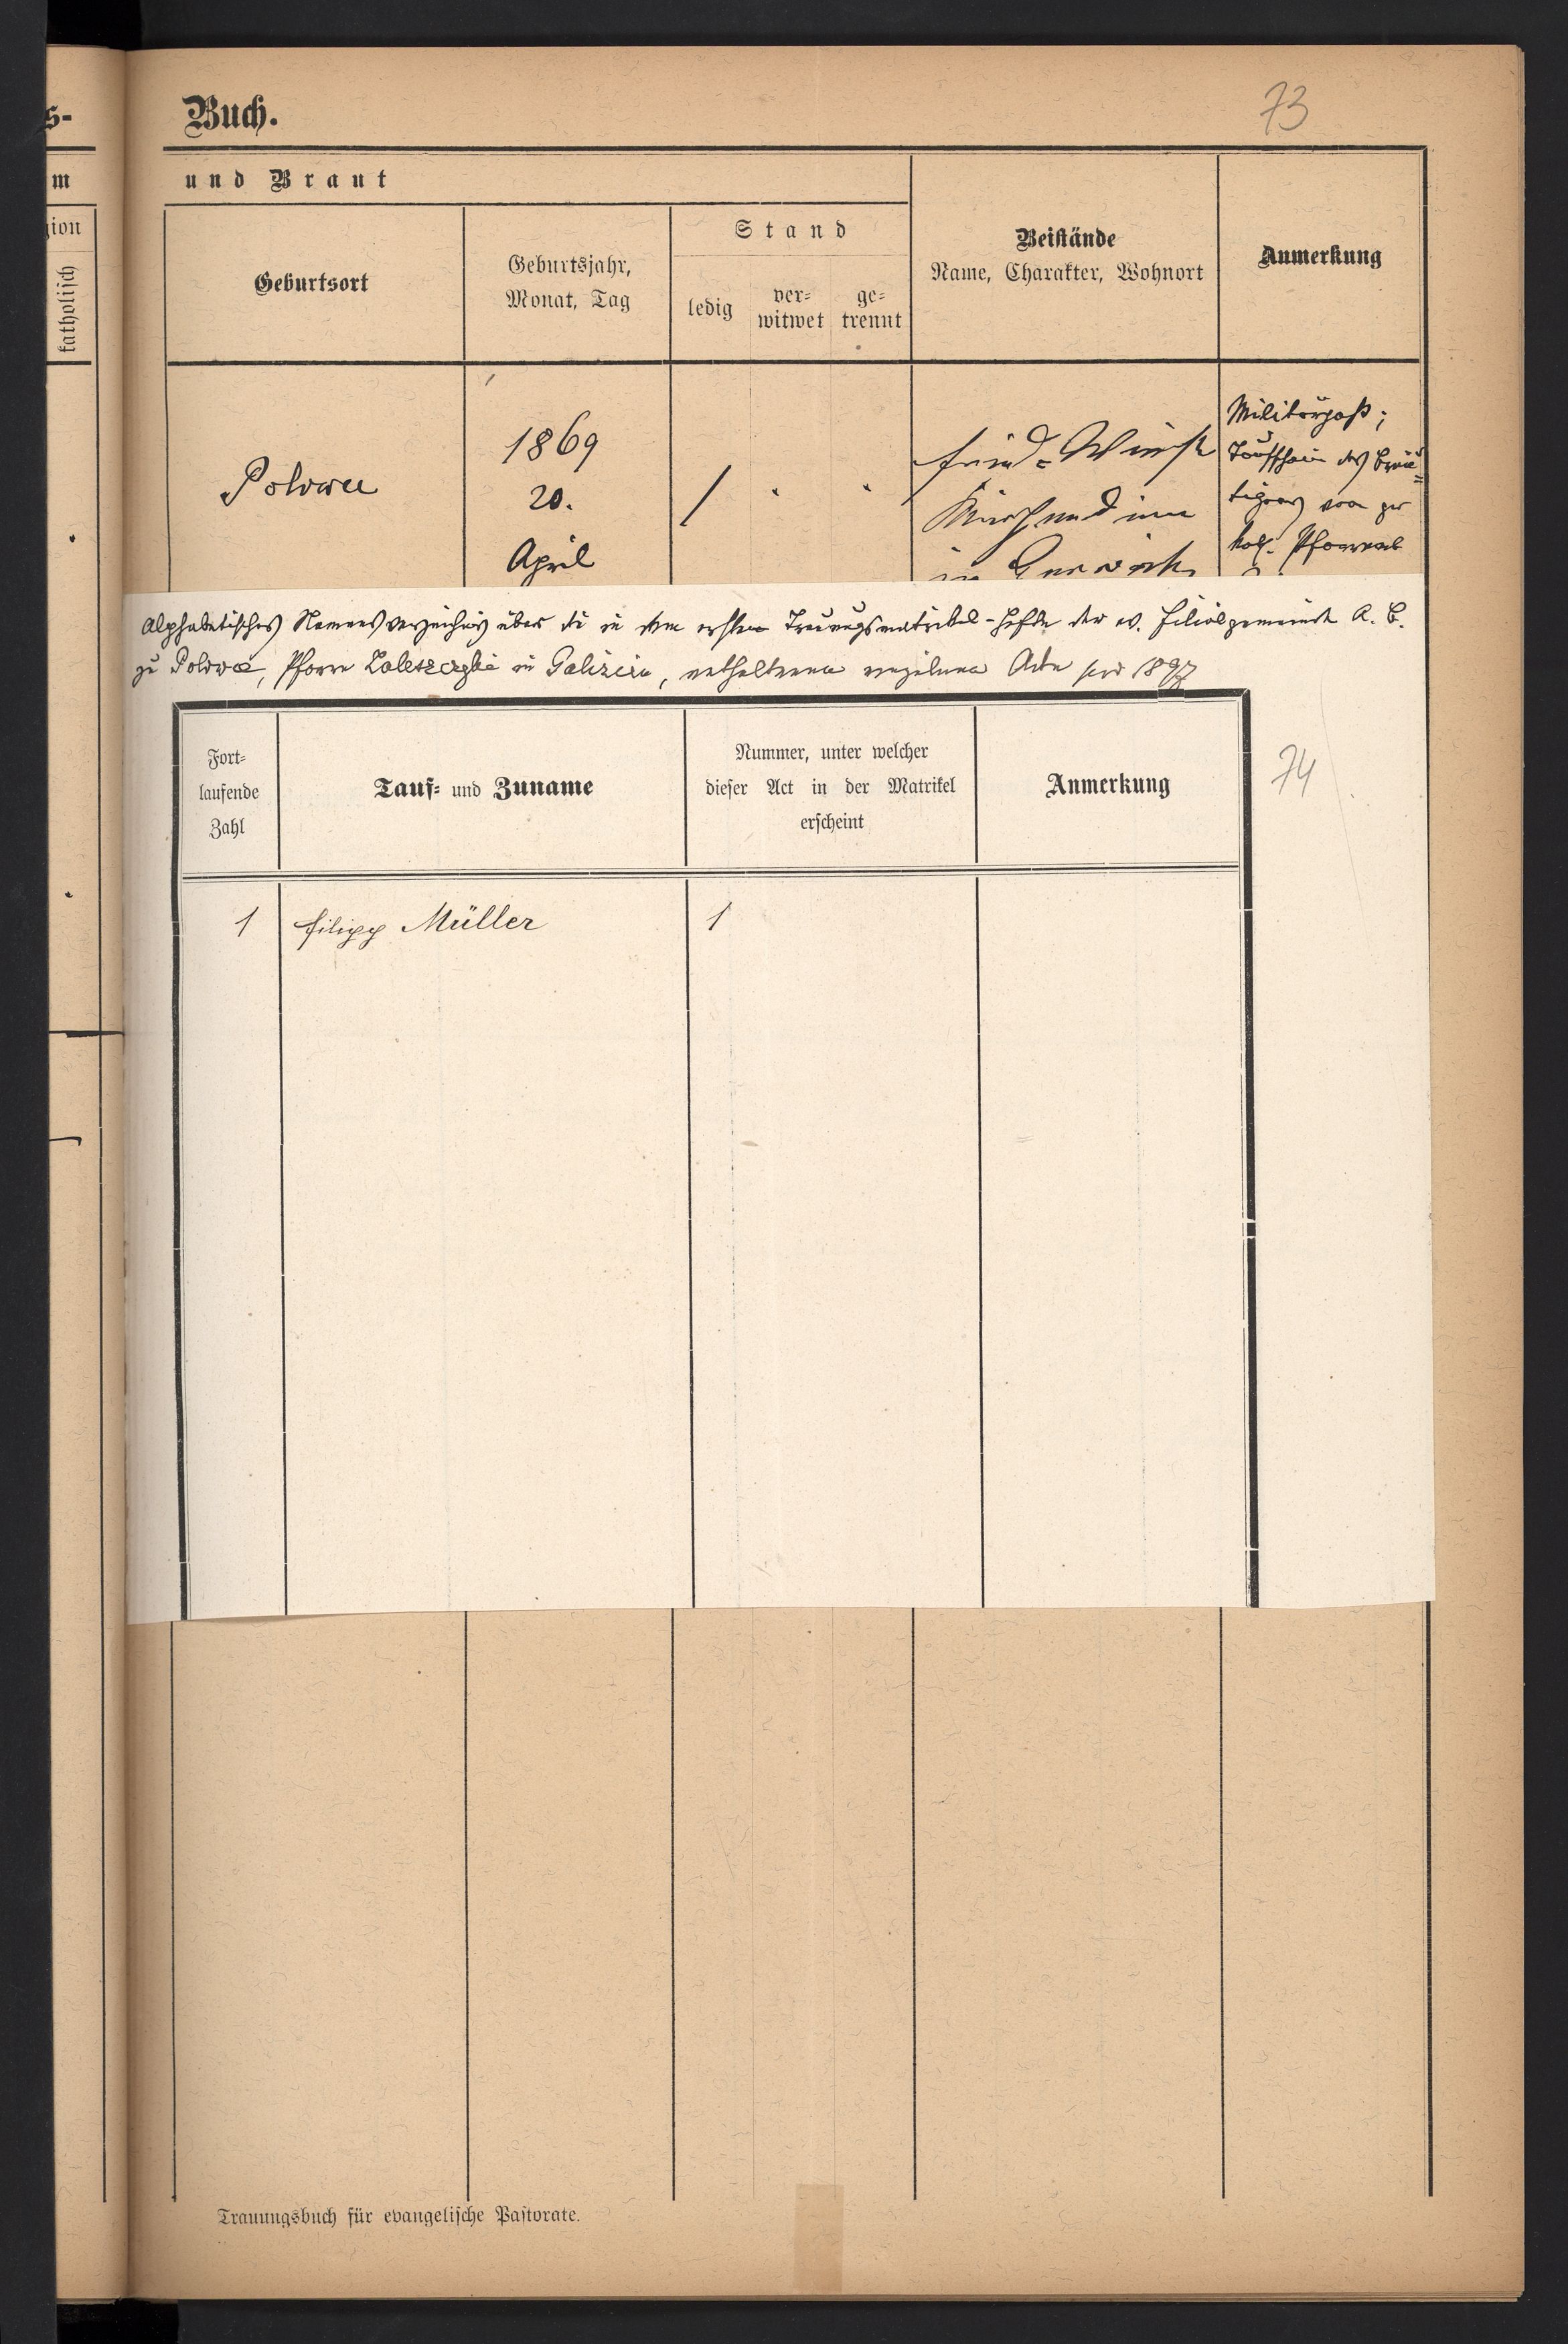 s-
Buch.
73
m
und Braut
gion
katholisch
Geburtsort
Geburtsjahr,
Monat, Tag
Stand
ledig
ver-
witwet
ge-
trennt
Beistände
Name, Charakter, Wohnort
Anmerkung
1869
20.
April
/
in
Militärpaß;
Taufschein des Bräu-
tigams von
kath. Pfarramt
Alphabetisches Namensverzeichnis über die in dem ersten Trauungsmatrikel-Hefte der ev. Filialgemeinde A. B.
zu Polowce, Pfarre Zaleszczyki in Galizien, enthaltenen einzelnen Acte pro 1897
Fort-
laufende
Zahl
Tauf- und Zuname
Nummer, unter welcher
dieser Act in der Matrikel
erscheint
Anmerkung
74
1 Filipp Müller 1
Trauungsbuch für evangelische Pastorate.